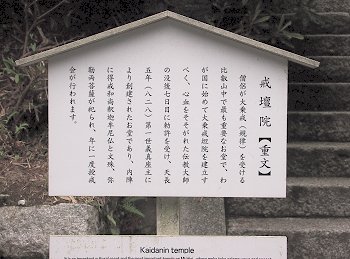 戒壇院【重文】
僧侶が大乗戒（規律）を受ける
比叡山中で最も重要なお堂で、わ
が国に始めて大乗戒壇院を建立す
べく、心血をそそがれた伝教大師
の没後七日目に勅許を受け、天長
五年（八二八）第一世義真座主に
より創建されたお堂であり、内陣
に得戒和尚釈迦牟尼仏と文殊、弥
勒両菩薩が祀られ、年に一度授戒
会が行われます。
Kaidanin temple